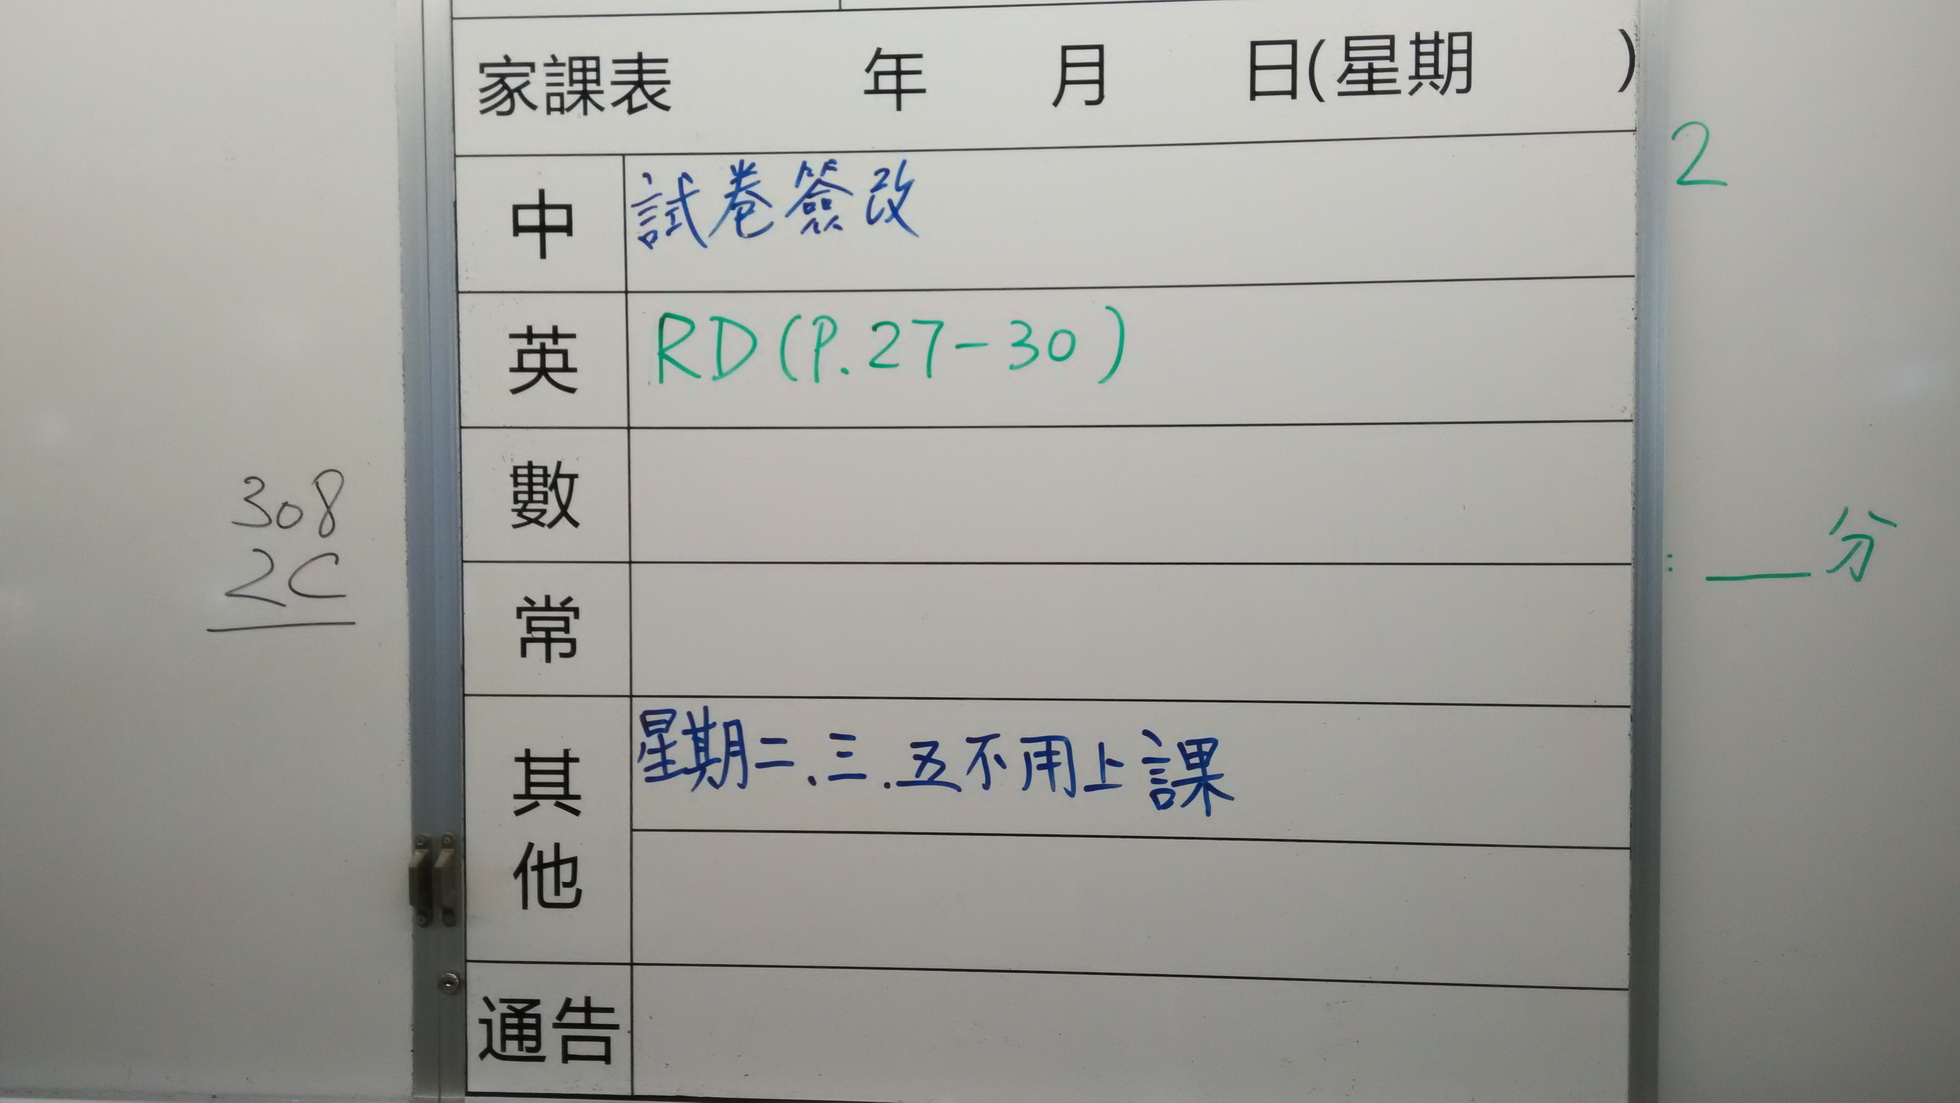 家課表 年 月 日(星期 )
2
中 試卷簽改
英 RD(P.27-30)
數
308
2C
: ___分
常
其他 星期二.三.五不用上課
通告